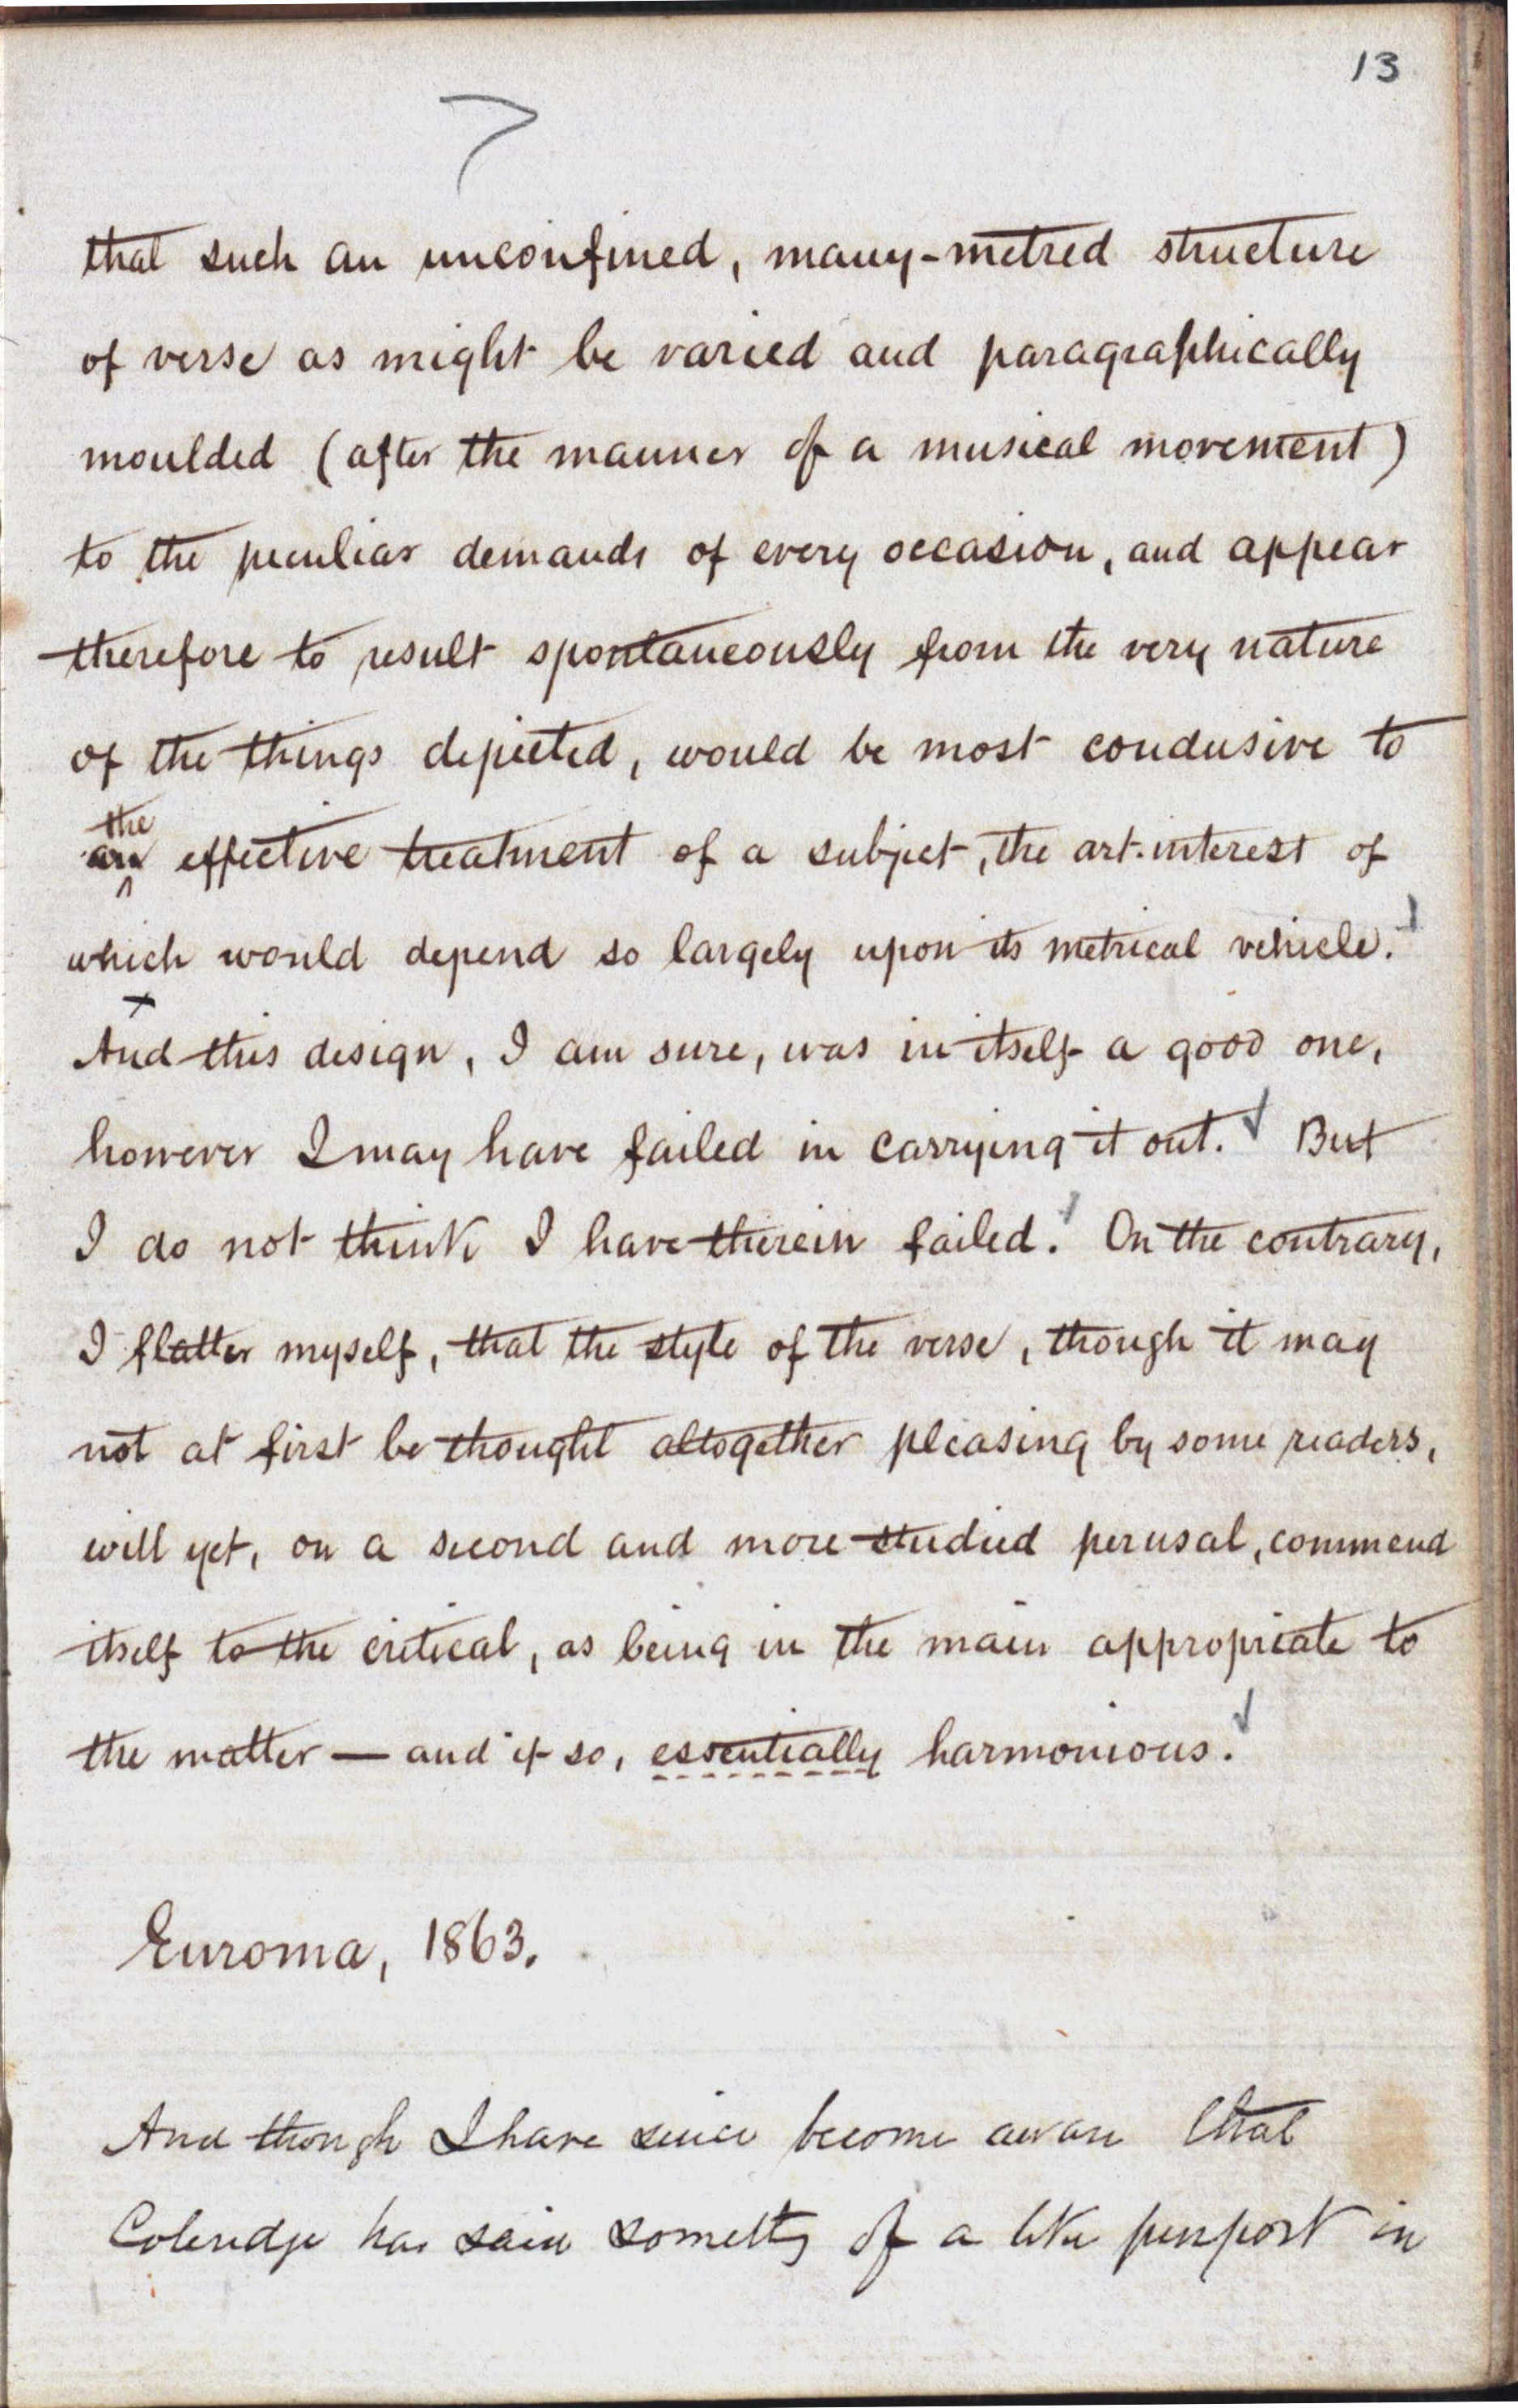 13
7
that such an unconfined, many-metred structure
of verse as might be varied and paragraphically
moulded (after the manner of a musical movement)
to the peculiar demands of every occasion, and appear
therefore to result spontaneously from the very nature
of the things depicted, would be most condusive to
the
an effective treatment of a subject, the art-interest of
which would depend so largely upon its metrical vehicle.
And this design, I am sure, was in itself a good one,
however I may have failed in carrying it out. But
I do not think I have therein failed. On the contrary,
I flatter myself, that the style of the verse, though it may
not at first be thought altogether pleasing by some readers,
will yet, on a second and more studied perusal, commend
itself to the critical, as being in the main appropriate to
the matter — and if so, essentially harmonious.
Euroma, 1863.
And though I have since become aware that
Coleridge has said somethg of a like purport in